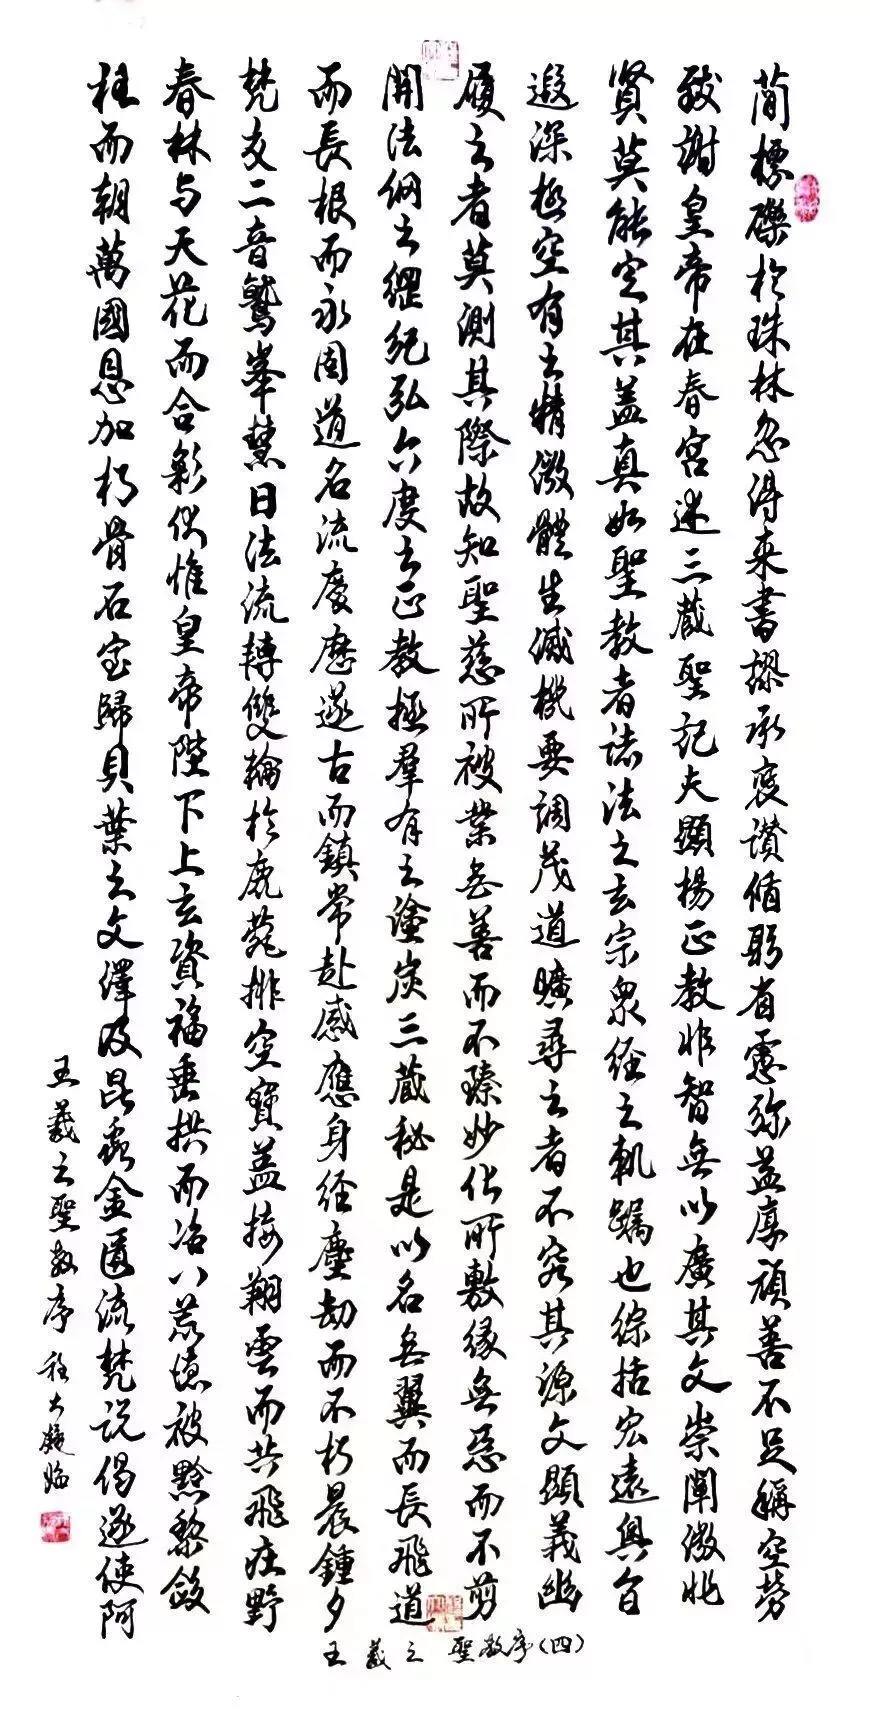 蕳標礫於珠林忽得来書謬承褒讃循躬省慮弥益厚顔善不足稱空勞
致謝皇帝在春宮述三藏聖記夫顯揚正教非智無以廣其文崇闡微非
賢莫能定其盖真如聖教者諸法之玄宗衆經之軌躅也綜括宏遠奥旨
遐深極空有之精微體生滅機要詞茂道曠尋之者不究其源文顯義幽
履之者莫測其際故知聖慈所被業無善而不臻妙化所敷緣無惡而不剪
開法網之綱紀弘六度之正教拯羣有之塗炭三藏秘是以名無翼而長飛道
而長根而永固道名流慶歷遂古而鎮常赴感應身經塵劫而不朽晨鍾夕
梵交二音鷲峯慧日法流轉雙輪於鹿菀排空寶盖接翔雲而共飛庄野
春林与天花而合彩伏惟皇帝陛下上玄資福垂拱而治八荒德被黔黎斂
衽而朝萬國恩加朽骨石室歸貝葉之文澤及昆蟲金匱流梵説偈遂使阿
王羲之聖教序 程大 臨
王羲之 聖教序(四)